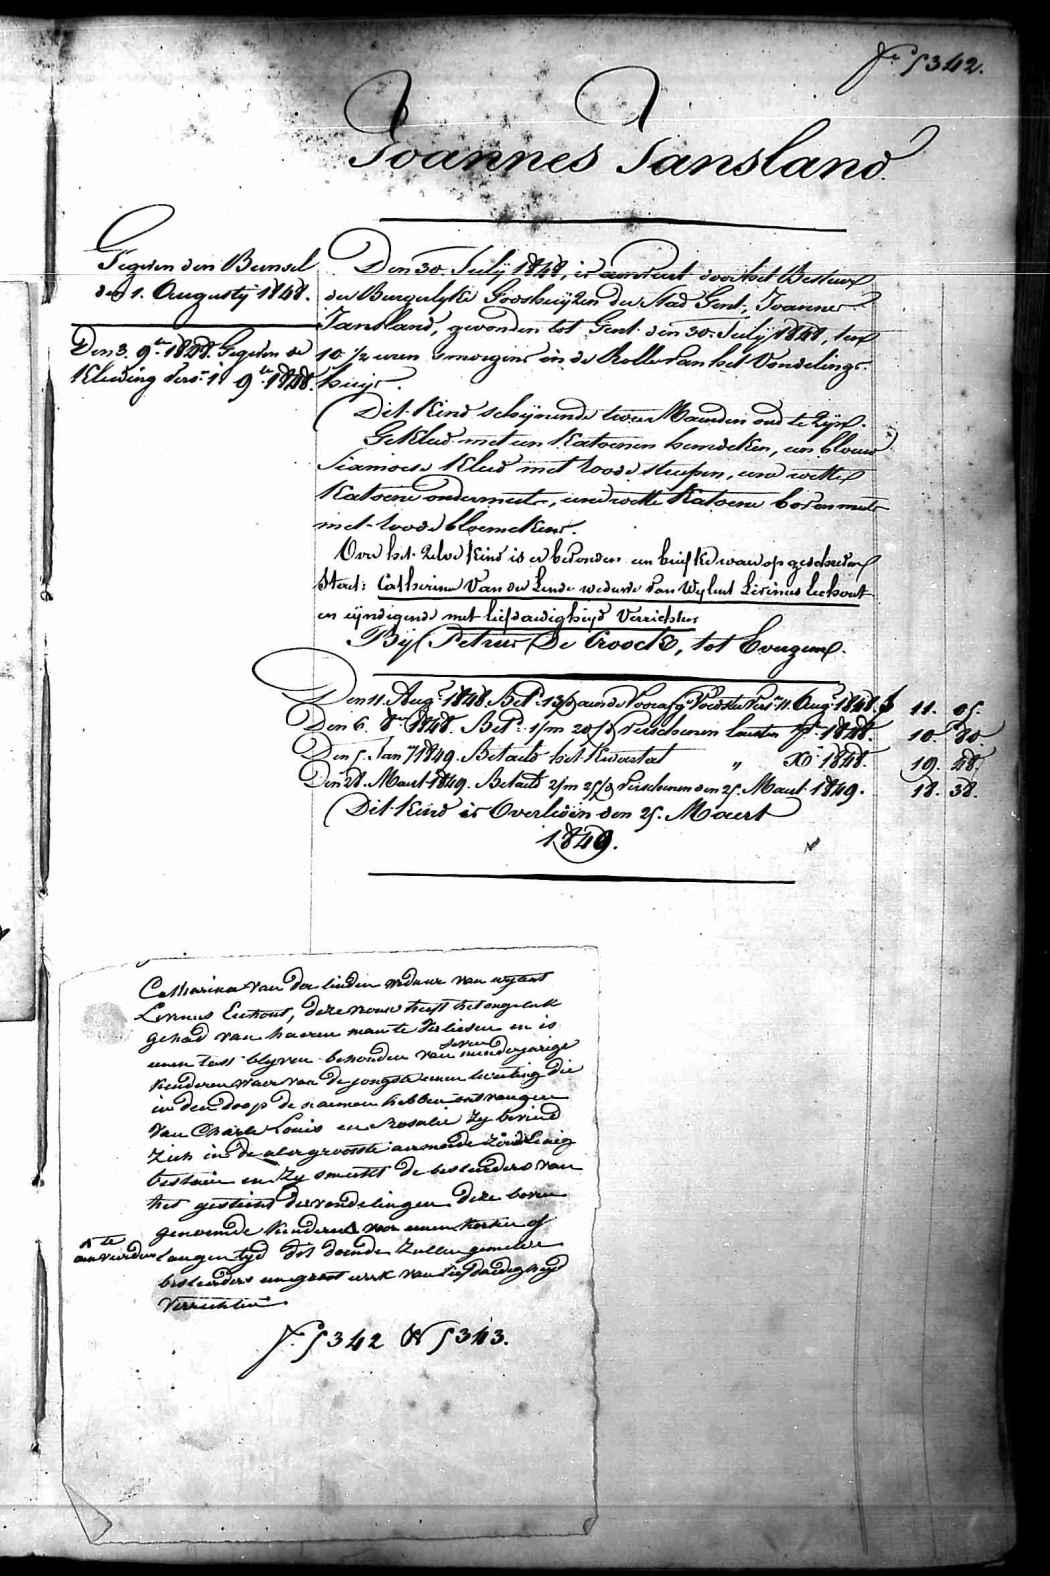 f.° 5342.
Joannes Jansland.
Gegeven den Bunsel
den 1. Augustij 1848.
Den 3. 9br 1848. Gegeven de
Kleeding vers. 1. 9br 1848.
Den 30. Julij 1848, is aenveert door het Bestuer
der Burgerlyke Godshuyzen der Stad Gent, Joannes
Jansland, gevonden tot Gent den 30. Julij 1848, ten
10 ½ uren smorgens in de Rolle van het Vondelings-
huijs.
Dit Kind schijnende twee Maenden oud te zijn.
Gekleed met een Katoenen hemdeken, een blauw
Siamoise Kleed met roode streepen, eene witte
Katoene ondermuts, eene witte Katoene bovenmuts
met roode bloemekens.
Over het zelve Kind is er bevonden een briefke waer op geschreven
staet: Catherina Van der Linde weduwe van Wylent Livinus Eechout
en eijndigende met liefdadigheyd Verrichten
Bij Petrus De Croock, tot Evergem.
Den 11. Aug. 1848. Bet. 13/ aen de Voorafg. Voedster vers. 11. Aug. 1848. f 11. 05.
Den 6. 8br 1848. Bet. 1/m 20/ verschenen lauster 7br 1848. 10. 80
Den 5. Jan 1849. Betaeld het Kwartael " Xbr 1848. 19. 28.
Den 28. Maert 1849. Betaeld 2/m 25/ verschenen den 25. Maert 1849. 18. 38.
Dit Kind is Overleden den 25. Maert
1849.
Catharina van der linden weduwe van wylent
Livinus Eechout, deze vrouw heeft het ongeluk
gehad van haeren man te verliesen en is
eenen last blyven behouden van seven minderjarige
kinderen waer van de jongste eenen tweeling die
in den doop de naemen hebben ontvangen
van Charle Louis en Rosalie zy bevind
zich in de alergrootste aermoede zonder eenig
bestaen en zy smeekt de bestierders van
het gesticht der vondelingen deze boven
genoemde kinderen voor eenen korten of
^ te aenveirden
langen tyd dit doende zullen gemelde
bestierders een groot werk van liefdadigheyd
verrichten
f.° 5342 & 5343.